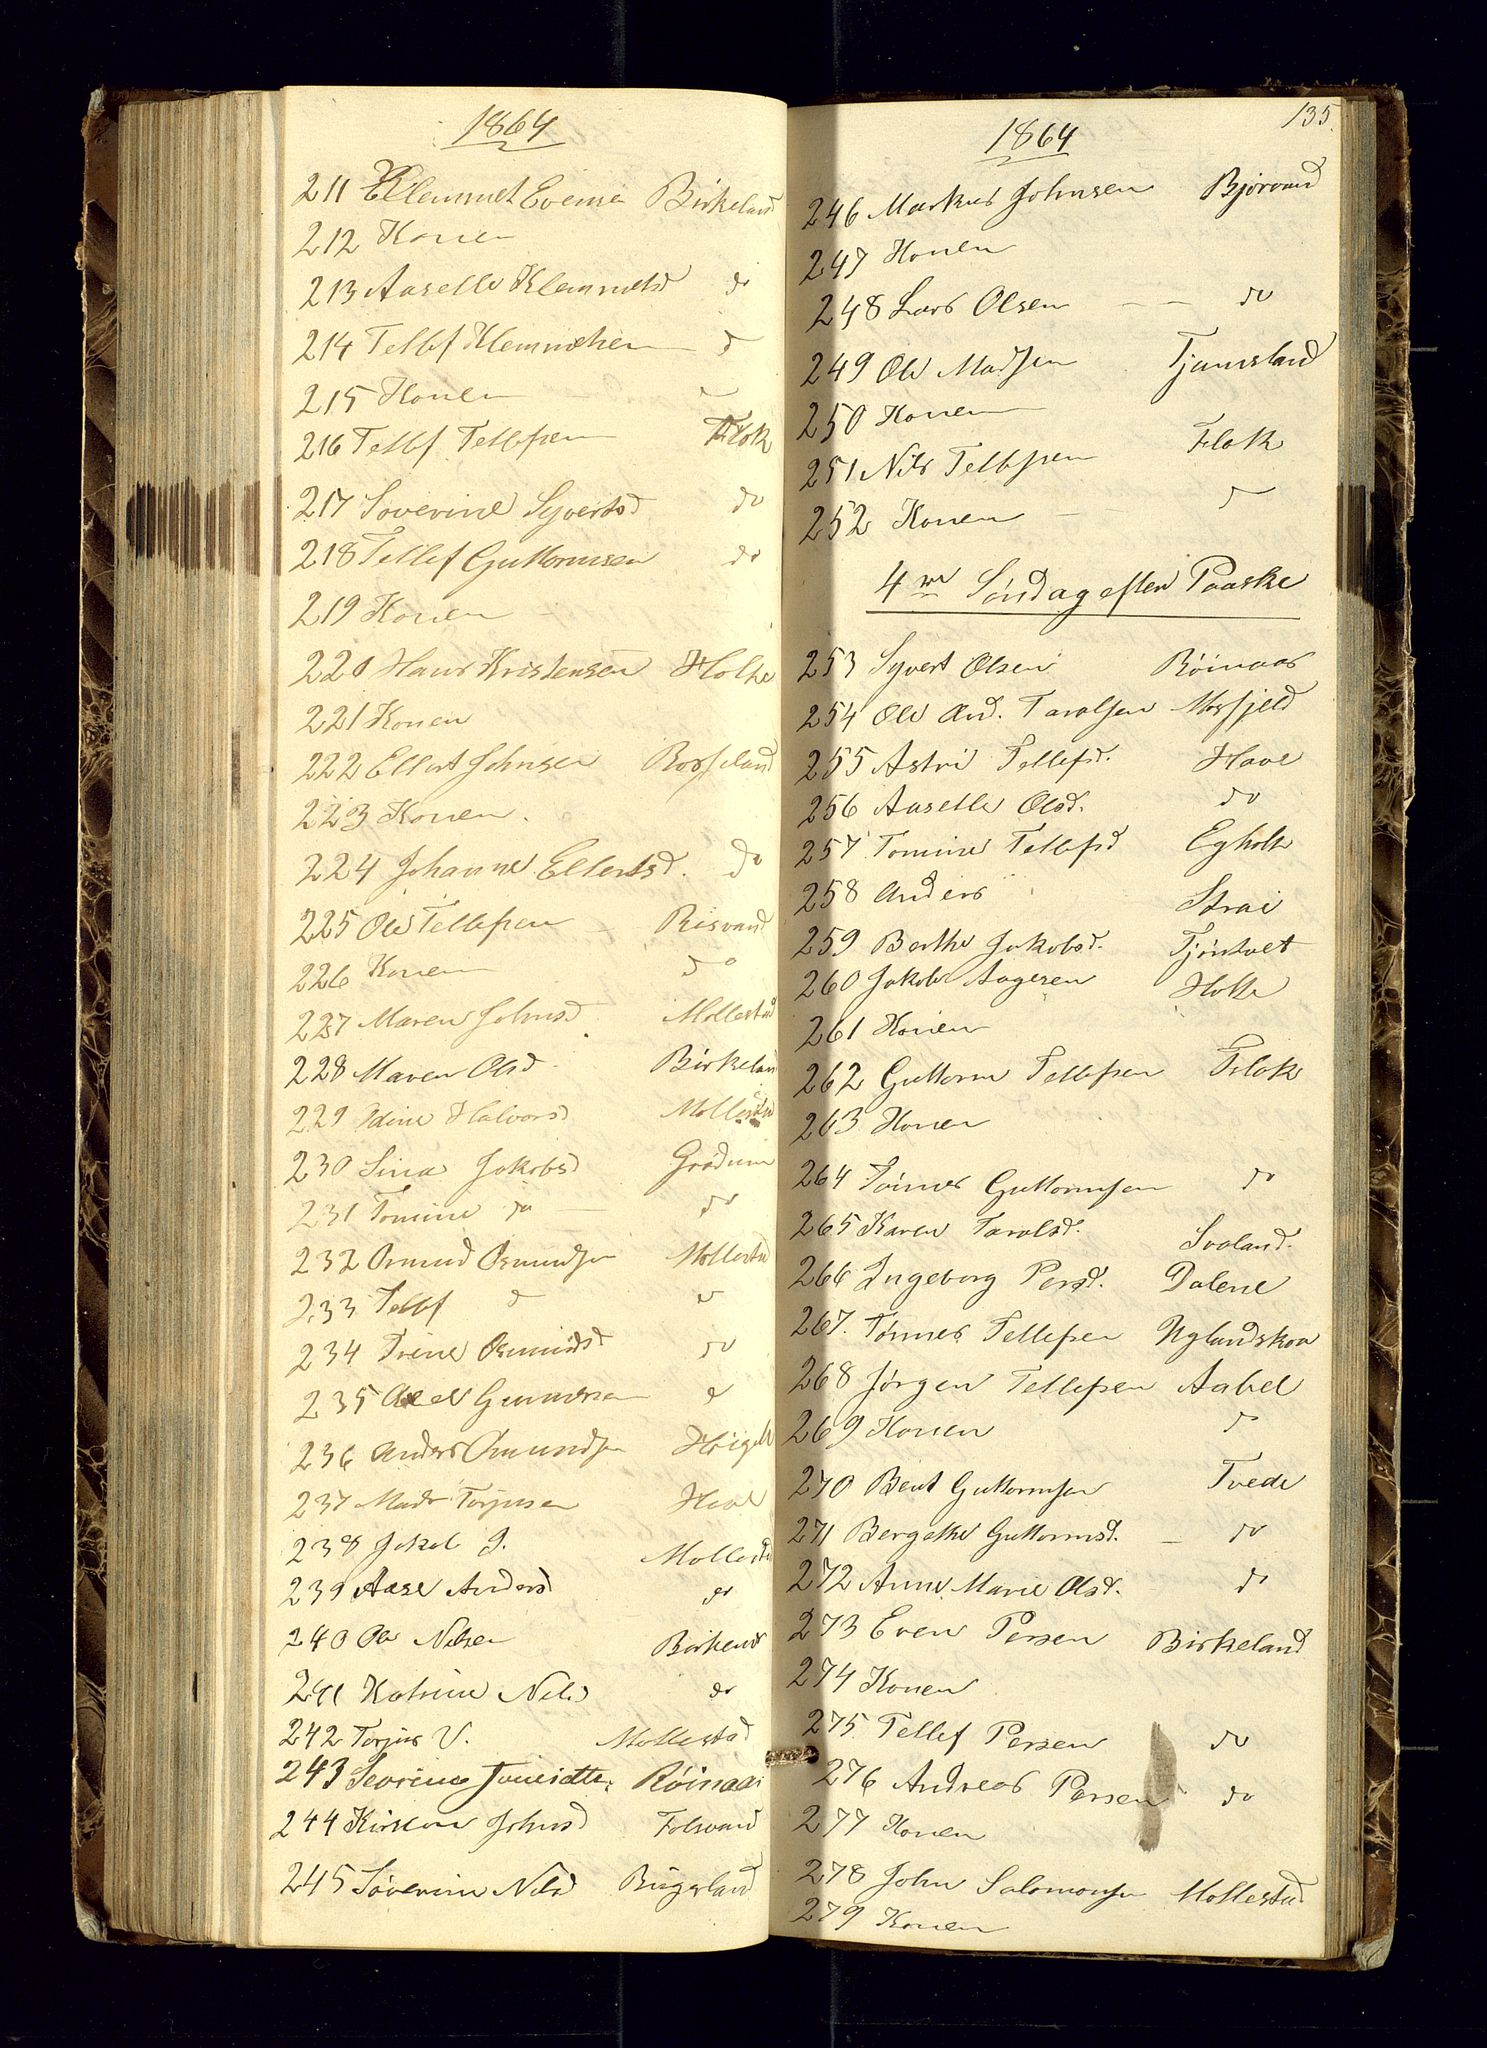 1864
211 Klemmet Evensen Birkeland
212 Konen
213 Aaselle Klemmetsd do
214 Tellef Klemmetsen d
215 Konen
216 Tellef Tellefsen Flok
217 Soverine Syvertsd do
218 Tellef Guttormsen do
219 Konen
220 Hans Kristensen Holte
221 Konen
222 Ellert Johnsen Rosseland
223 Konen.
224 Johanne Ellertsd. do
225 Ole Tellefsen Risvand
226 Konen do
227 Maren Johnsd Mollestad
228 Maren Olsd Birkeland
229 Edine Halvorsd Mollestad
230 Sina Jakobsd Grødum
231 Tomine do do
232 Osmund Osmundsen Mollestad
233 Tellef d do
234 Trine Osmundsd do
235 Gundersen do
236 Anders Omundsen
237 Mads Torjusen Have
238 Jakob J. Mollestad
239 Aase Andersd do
240 Ole Nilsen Birkenes
241 Katrine Nilsd do
242 Torjus V. Mollestad
243 Severine Røinaas
244 Kirsten Johnsd Folsvand
245 Søverine Nilsd
135.
1864
246 Markus Johnsen Bjorvand
247 Konen
248 Lars Olsen do
249 Ole Madsen Tjomsland
250 Konen
251 Nils Tellefsen Flok
252 Konen d
4de Søndag efter Paaske
253 Syvert Olsen Røinaas
254 Ole And. Taralsen Mosfjeld
255 Astri Tellefsd. Have
256 Aaselle Olsd. do
257 Tomine Tellefsd Egholte
258 Anders Strai
259 Berthe Jakobsd. Tjøntvet
260 Jakob Aagesen Holte
261 Konen
262 Guttorm Tellefsen Flok
263 Konen
264 Tønnes Guttormsen do
265 Karen Taralsd. Svaland.
266 Ingeborg Persd. Dalene
267. Tønnes Tellefsen Uglandskoa
268 Jørgen Tellefsen Aabel
269 Konen d
270 Bent Guttormsen Tvede
271 Bergethe Guttormsd. do
272 Anne Marie Olsd. do
273 Even Persen Birkeland
274 Konen
275 Tellef Persen do
276 Andreas Persen do
277 Konen
278 John Salomonsen Mollestad
279 Konen